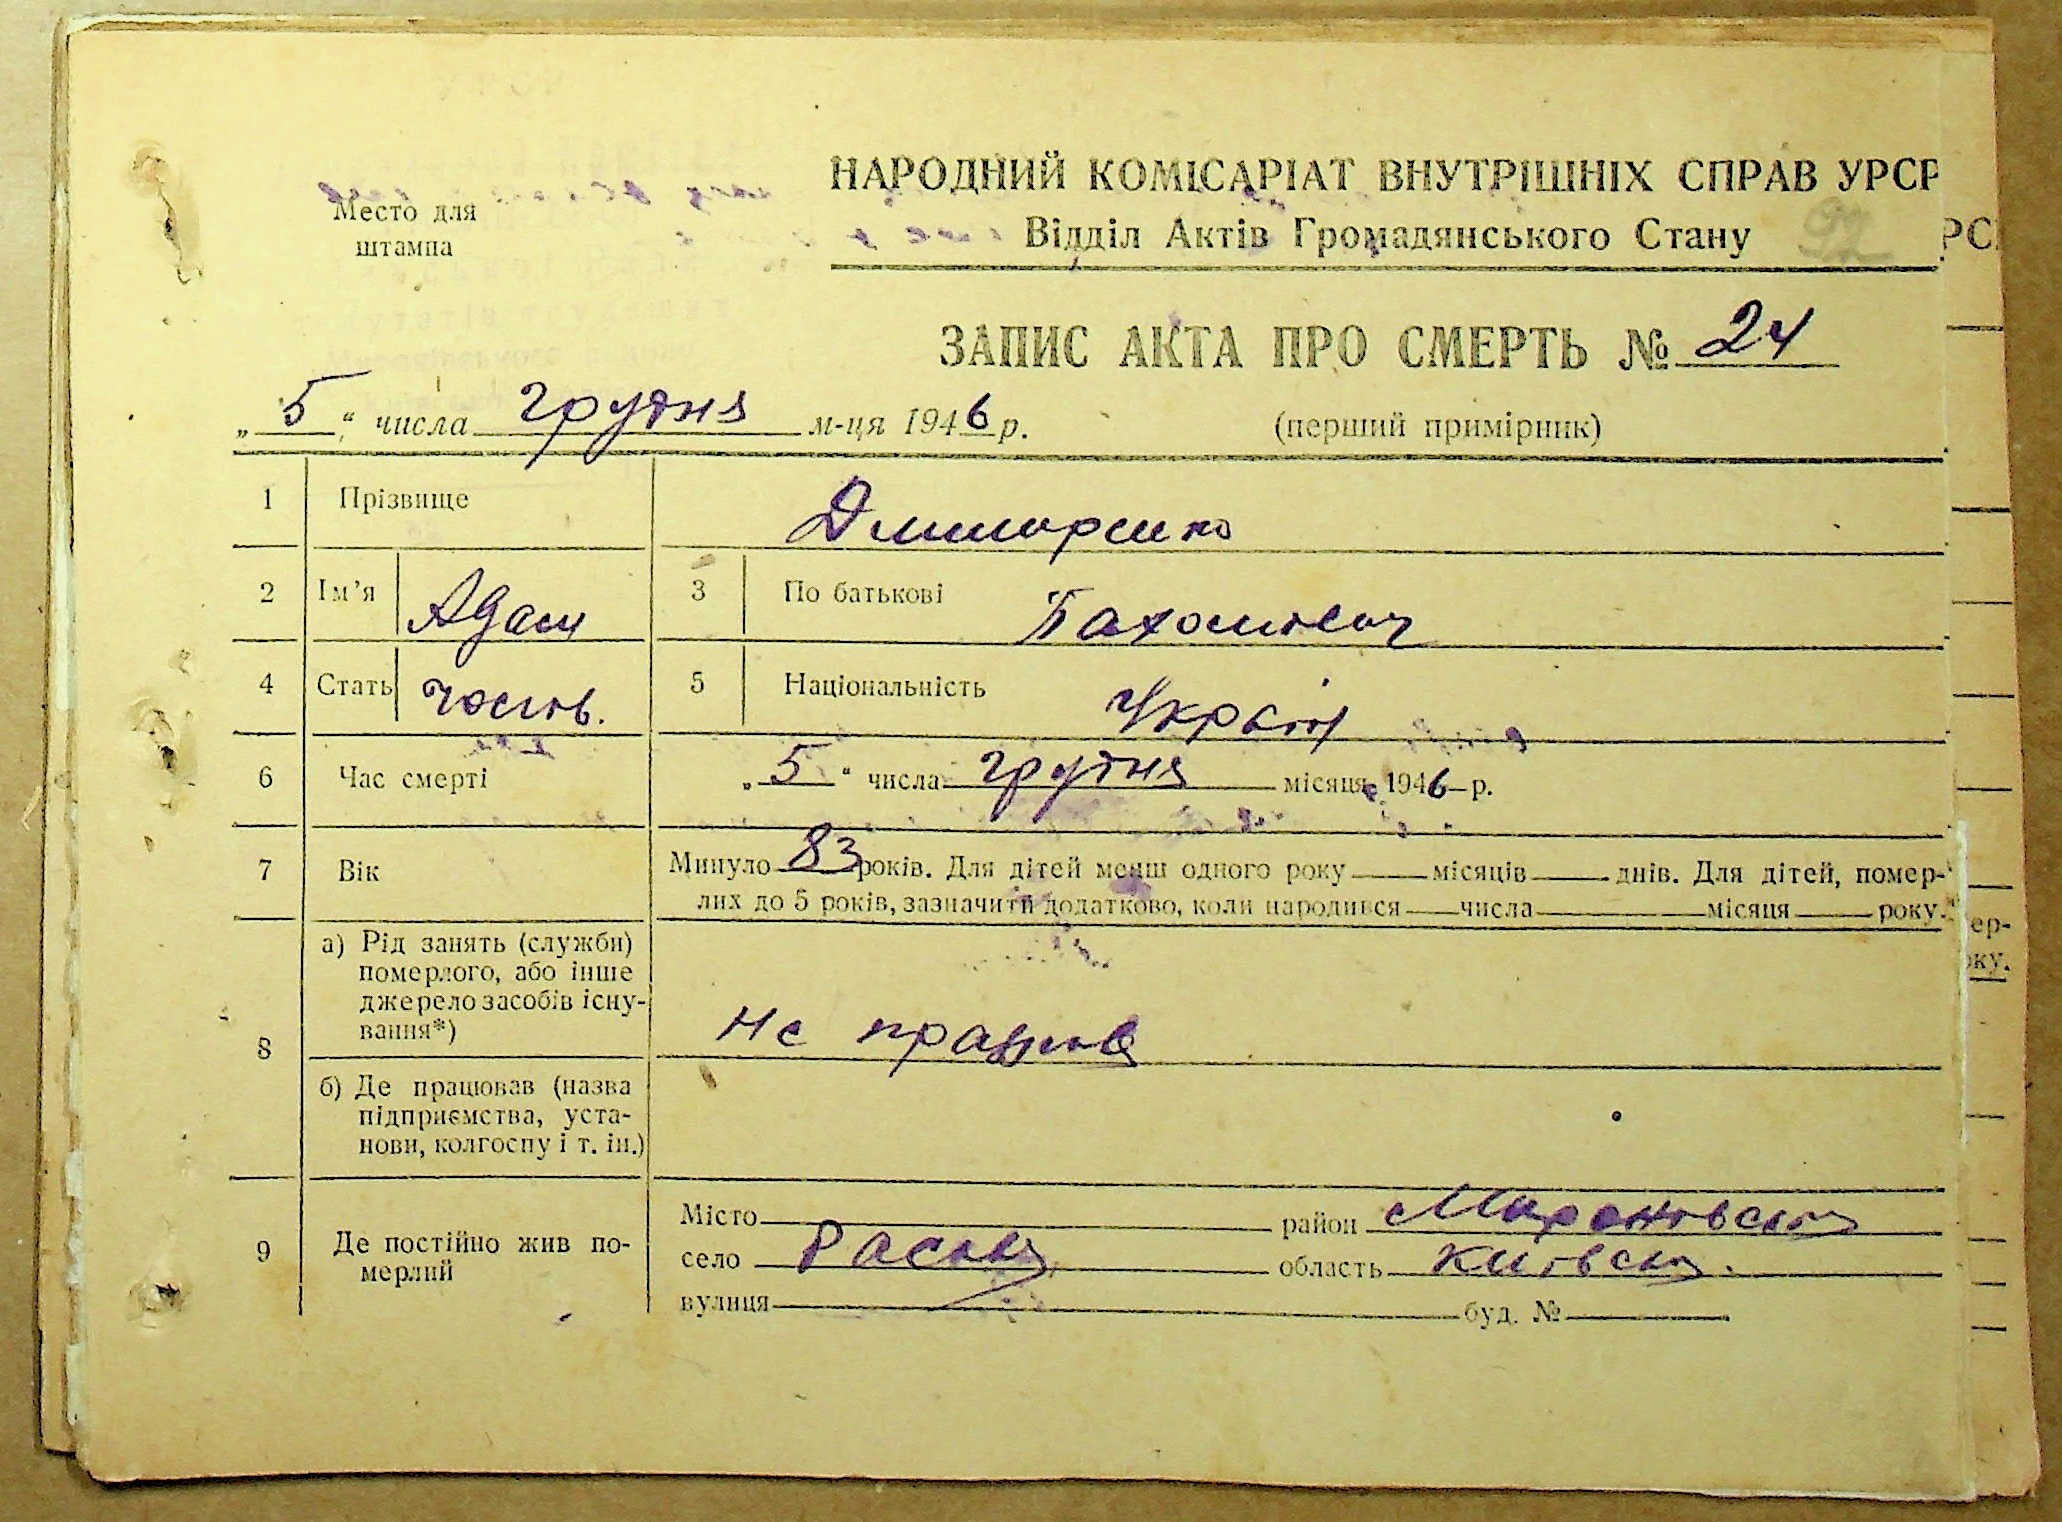 Место для
штампа
НАРОДНИЙ КОМІСАРІАТ ВНУТРІШНІХ СПРАВ УРСР
Відділ Актів Громадянського Стану
РС
ЗАПИС АКТА ПРО СМЕРТЬ № 24
„5“ числа грудня м-ця 1946 р.
(перший примірник)
1 Прізвище Дмитренко
2 Ім'я Адам 3 По батькові Пахомович
4 Стать чолов. 5 Національність Україн
6 Час смерті „5“ числа грудня місяця 1946 р.
7 Вік Минуло 83 років. Для дітей менш одного року місяців днів. Для дітей, помер-
лих до 5 років, зазначити додатково, коли народився числа місяця року.
ер-
оку.
8 а) Рід занять (служби)
померлого, або інше
джерело засобів існу-
вання*)
Не працюв
б) Де працював (назва
підприємства, уста-
нови, колгоспу і т. ін.)
9 Де постійно жив по-
мерлий
Місто район Мироновский
село Расава область Київська.
вулиця буд. №